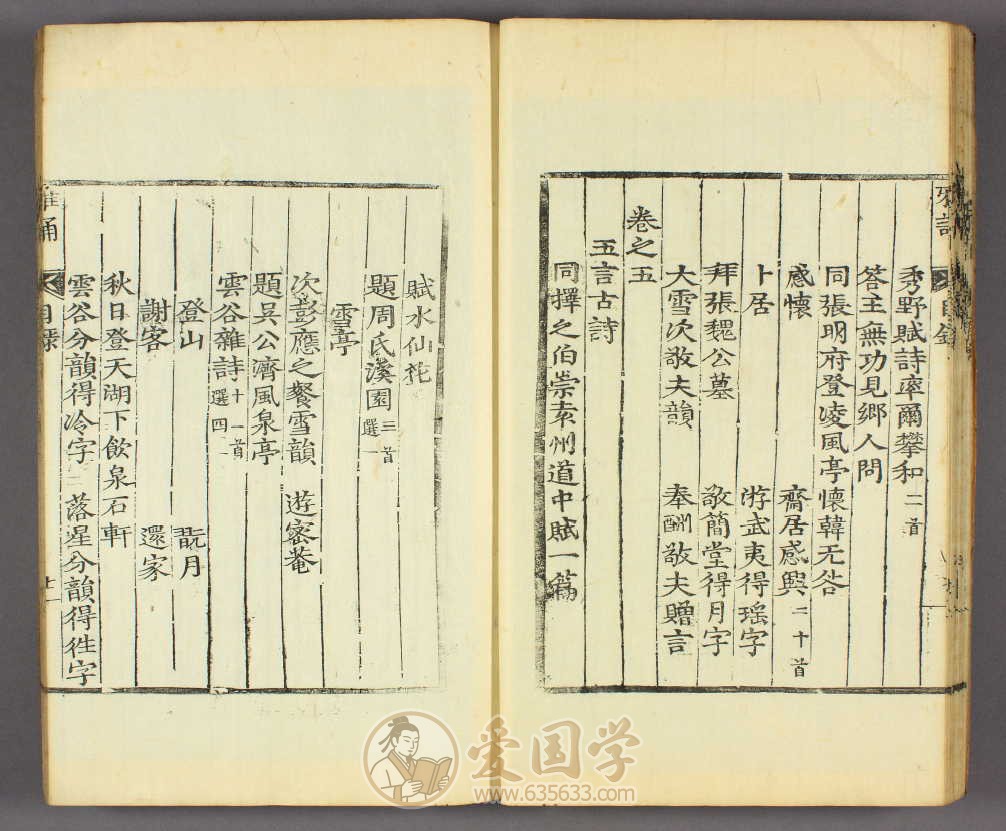 秀野賦詩率爾攀和二首
答王無功見鄉人問
同張明府登凌風亭懷韓无咎
感懷　齋居感興二十首
卜居　游武夷得瑶字
拜張魏公墓　敬簡堂得月字
大雪次敬夫韻　奉酬敬夫贈言
卷之五
五言古詩
同擇之伯崇
州道中賦一篇
賦水仙花
題周氏溪園三首選一
雪亭
次彭應之餐雪韻　遊密菴
題吳公濟風泉亭
雲谷雜詩十一首選四
登山　翫月
謝客　還家
秋日登天湖下飲泉石軒
雲谷分韻得冷字　落星分韻得往字
雅誦
目録
十一
爱国学
www.635633.com